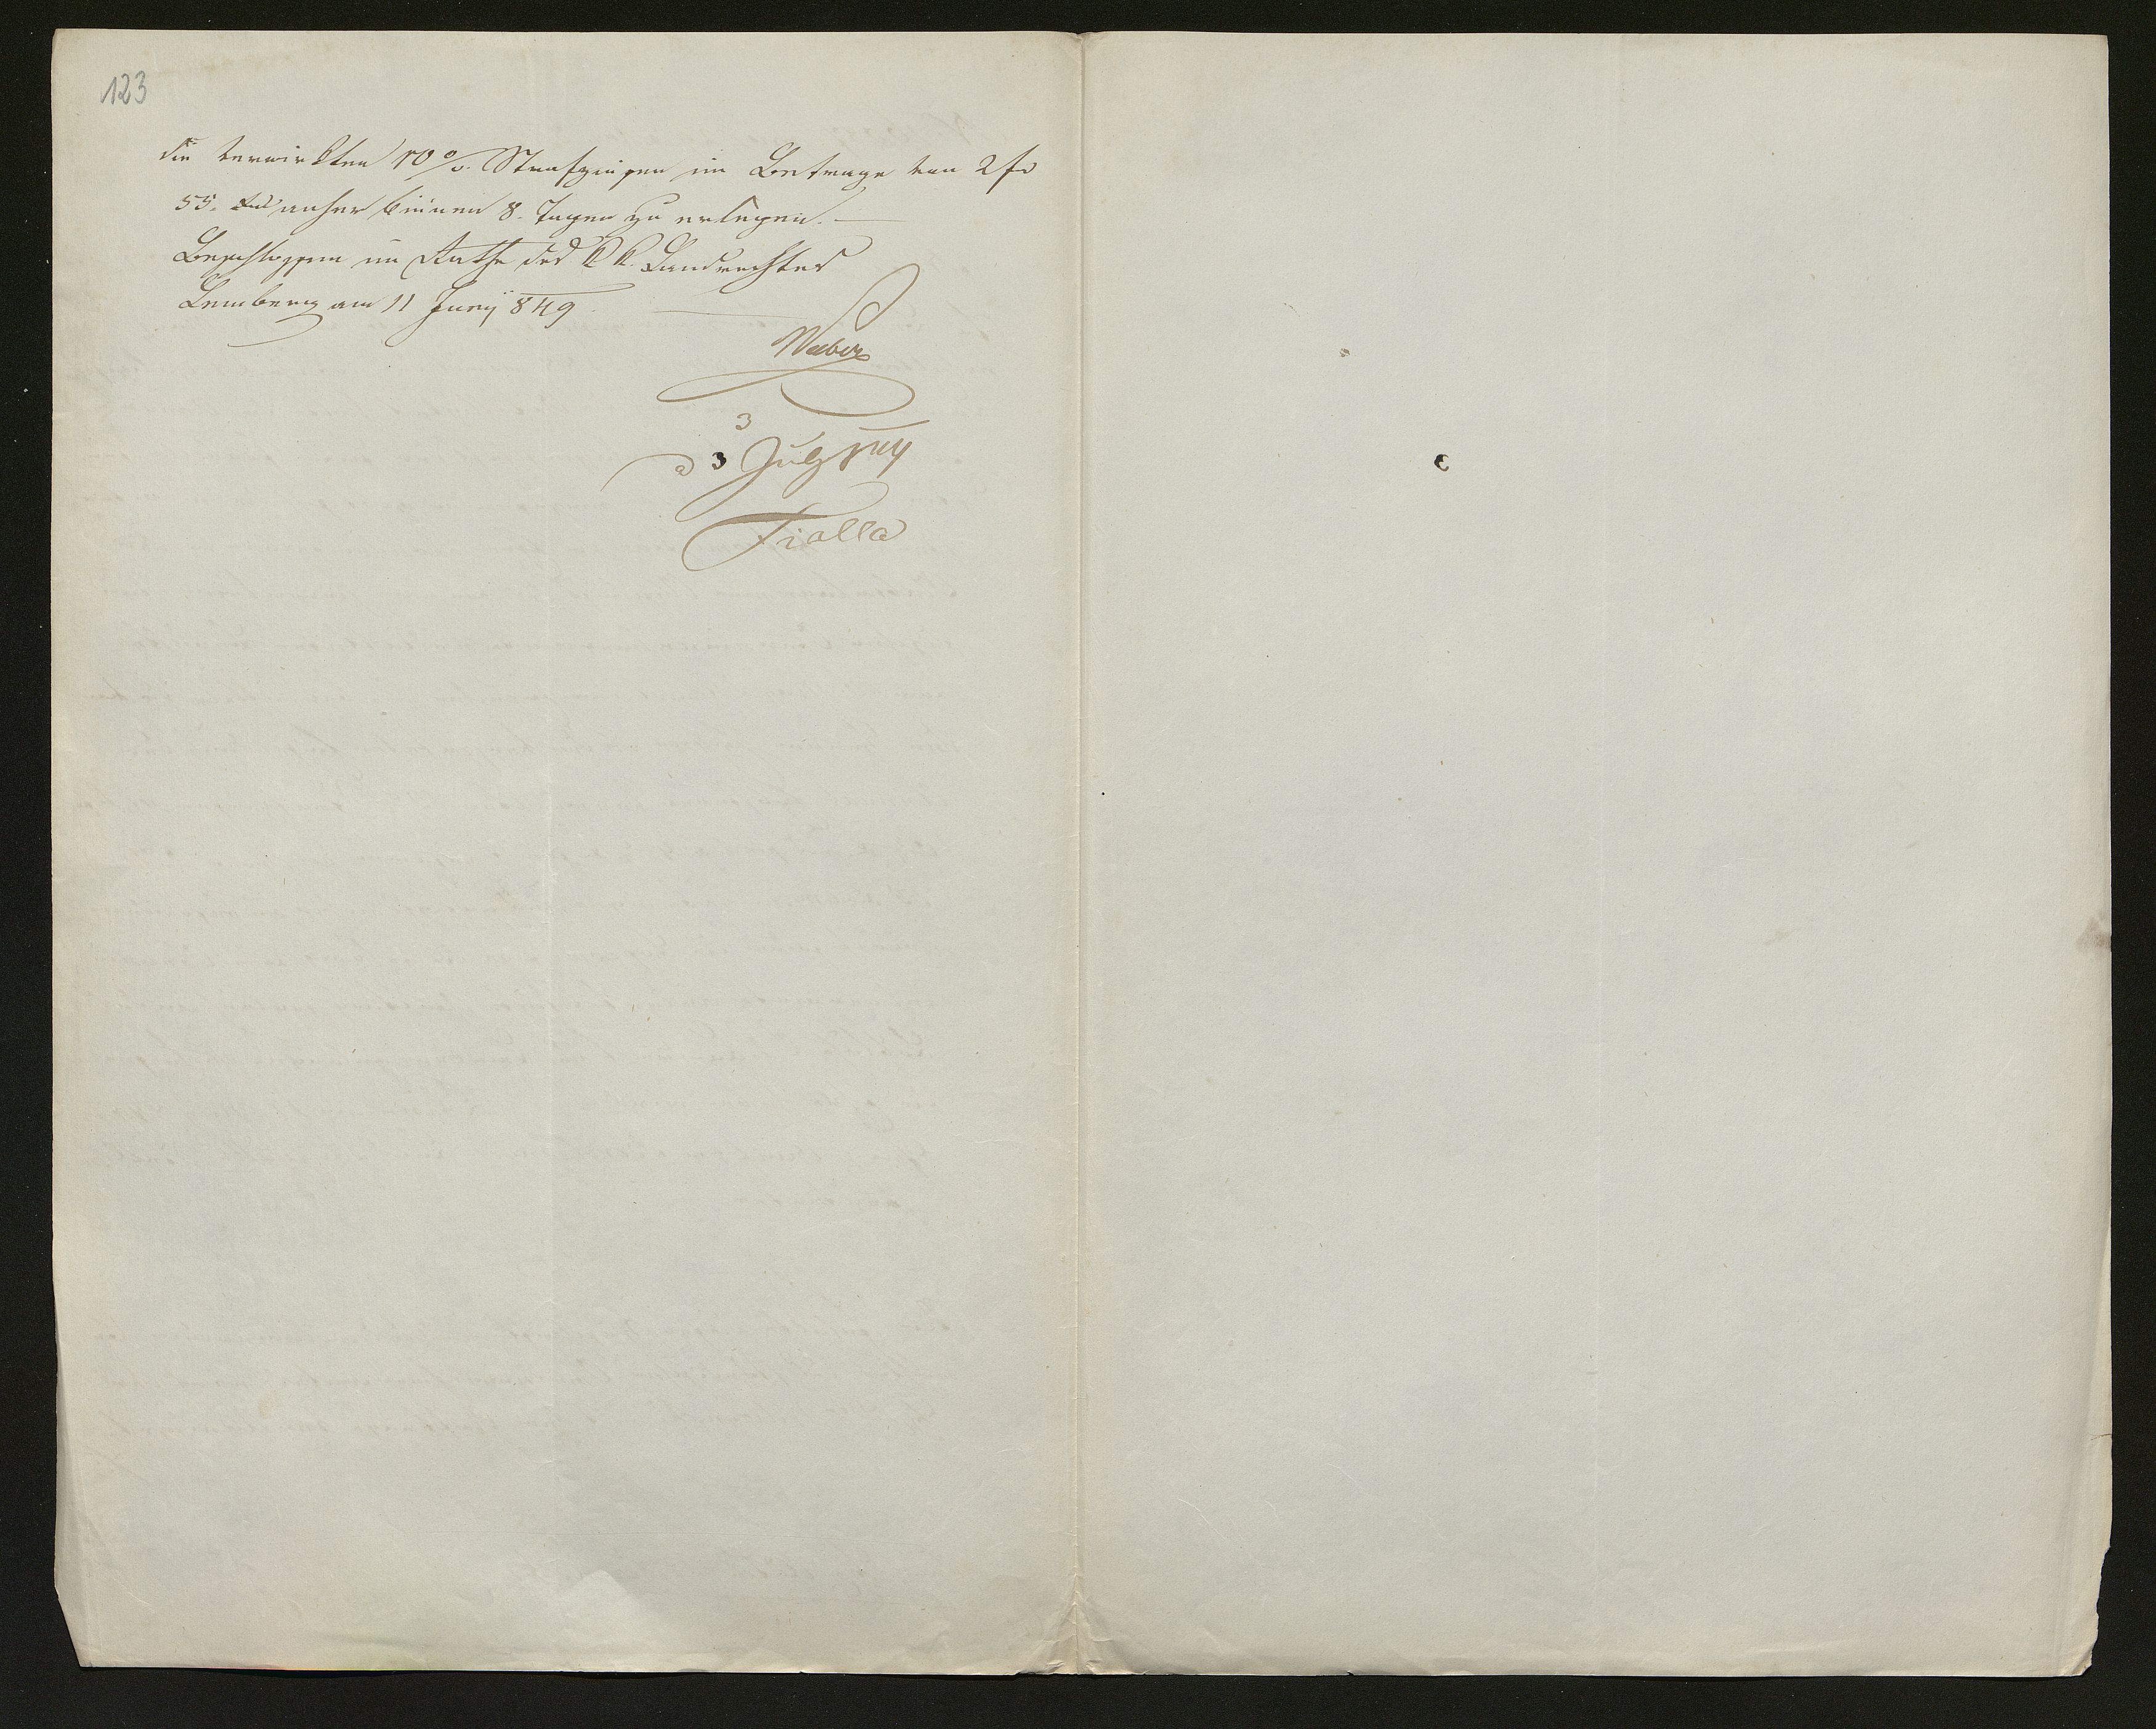 123
die verwirkten 10% Strafzinsen im Betrage von 2 fr
55. anher binnen 8. Tagen zu erlegen. —
Beschlossen im Rathe des k k. Landrechtes
Lemberg am 11 Juny 849
Weber
3
d 3 July
Fialla